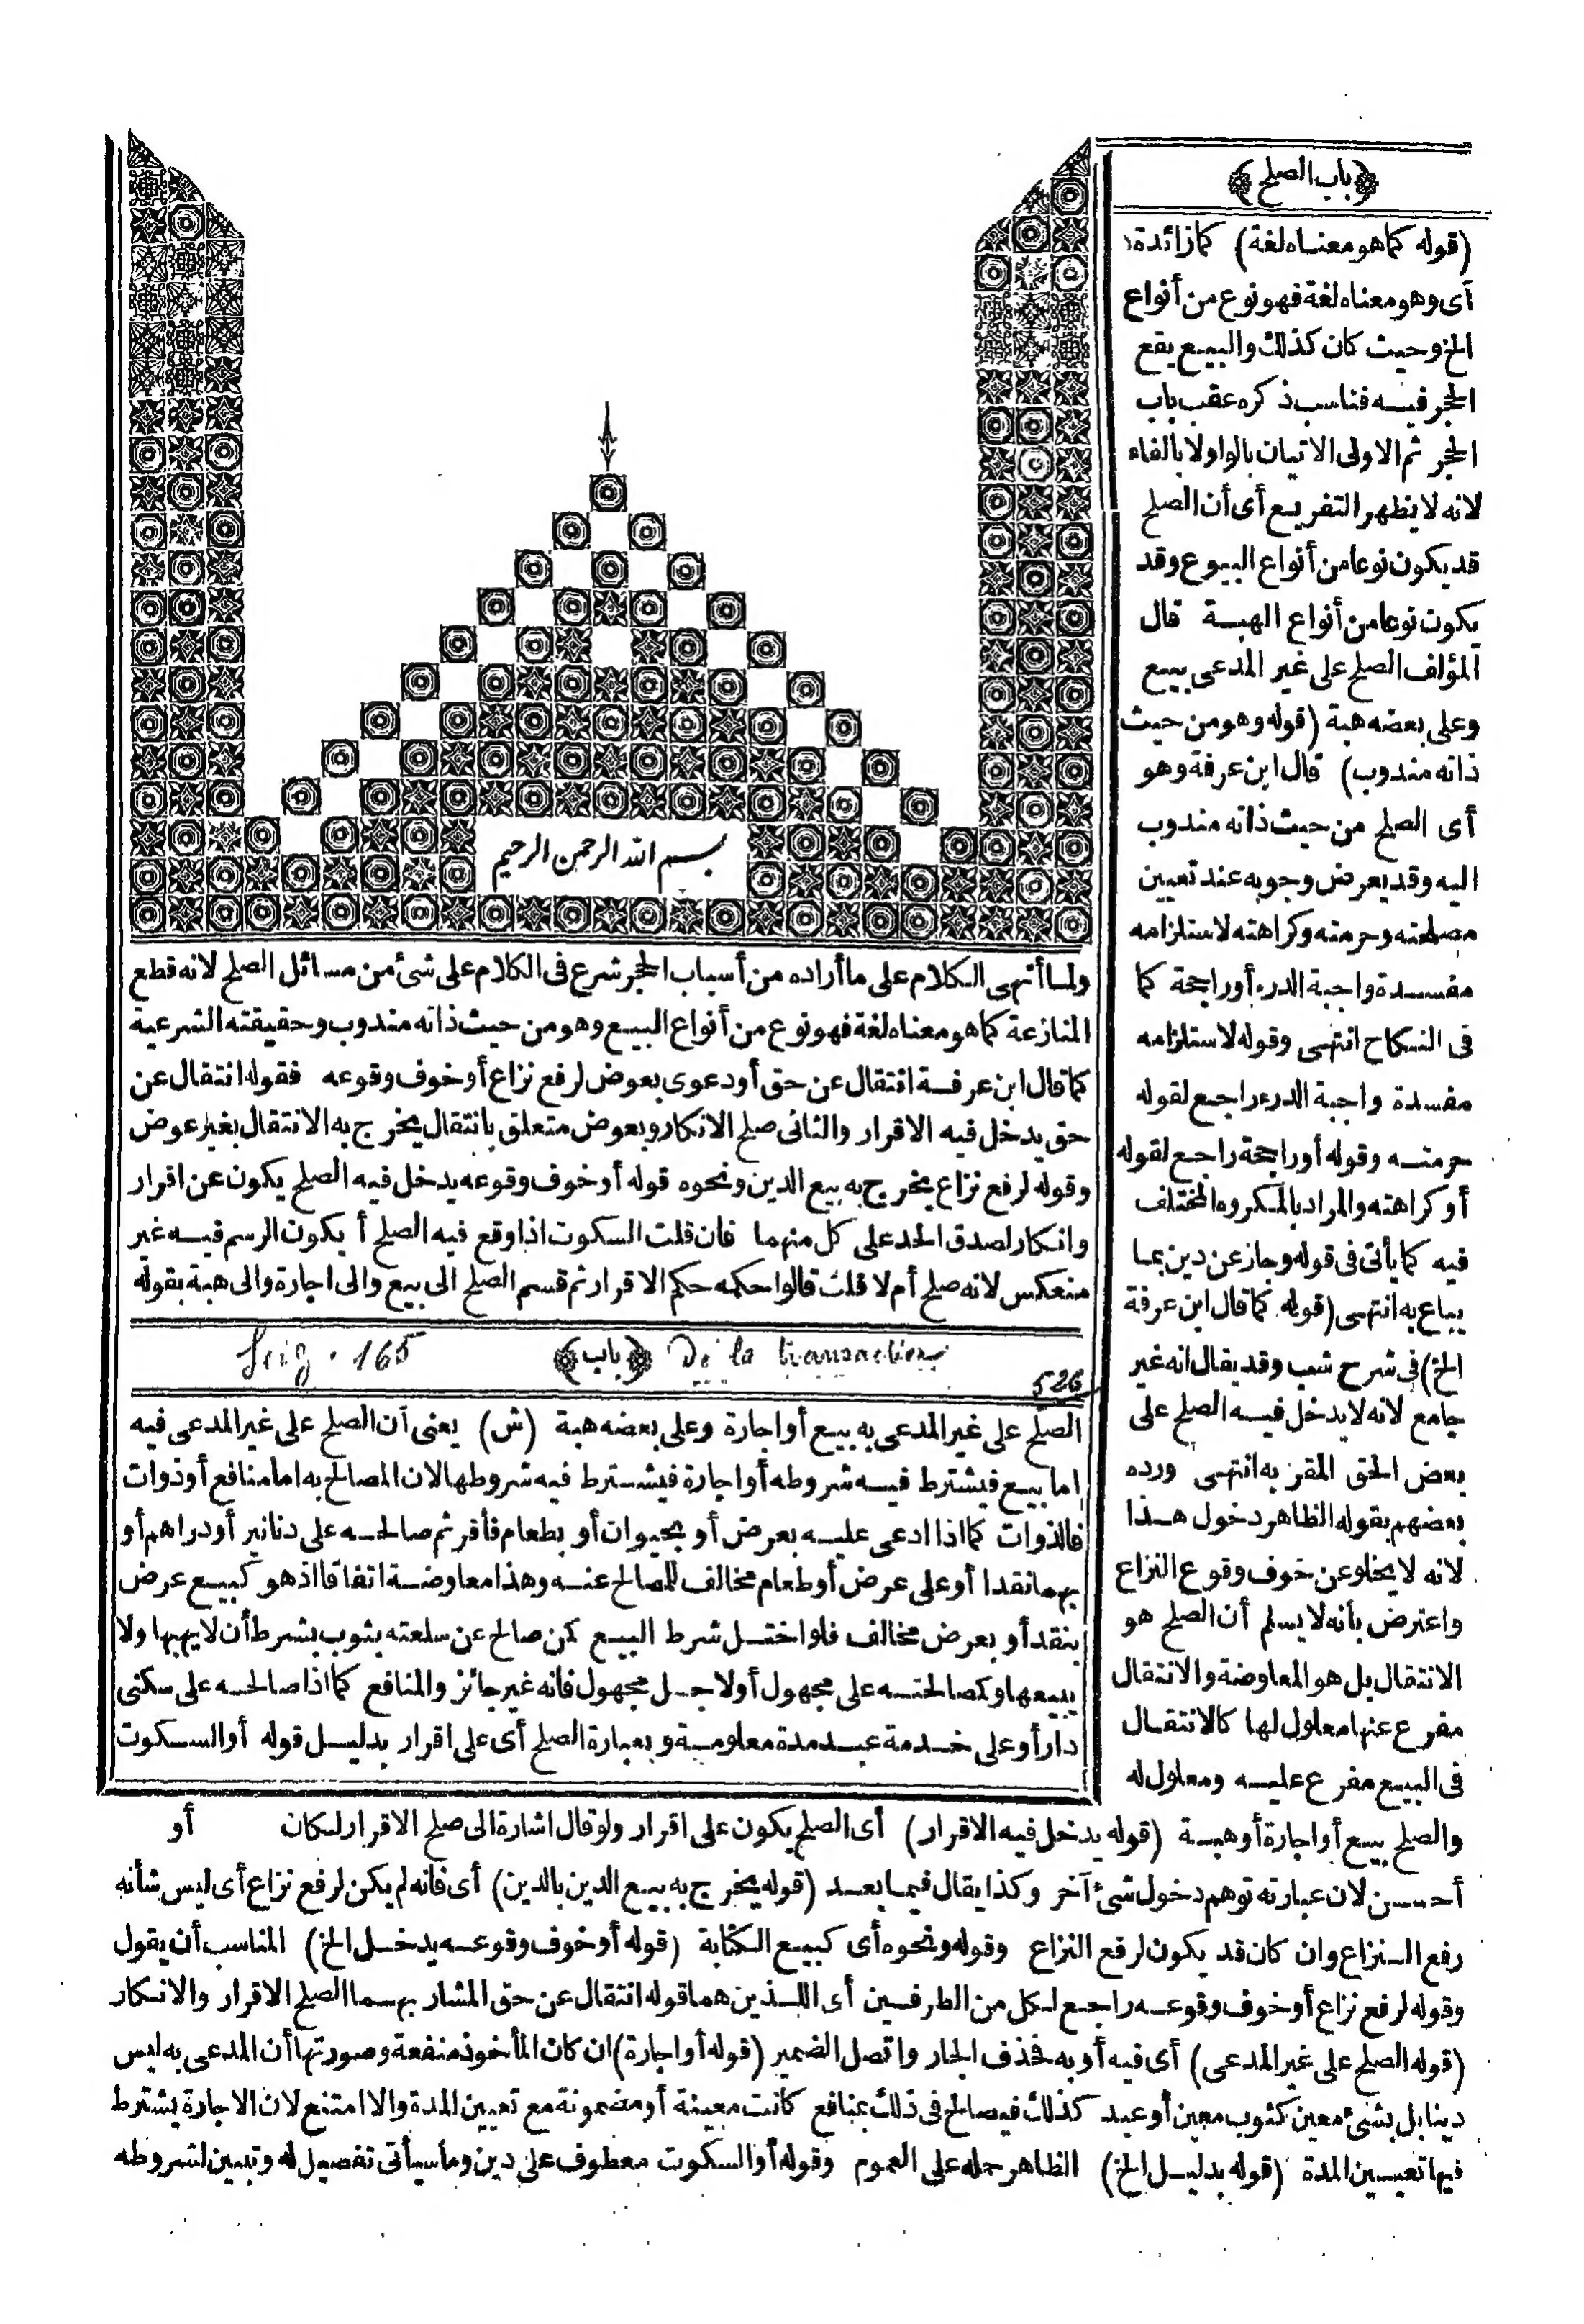 بسم الله الرحمن الرحيم
ولما أنهى الكلام على ما أراده من أسباب الحجر شرع فى الكلام على شئ من مسائل الصلح لانه قطع
المنازعة كما هو معناه لغة فهو نوع من أنواع البيع وهو من حيث ذاته مندوب وحقيقته الشرعية
كما قال ابن عرفة انتقال عن حق أو دعوى بعوض لرفع نزاع أو خوف وقوعه فقوله انتقال عن
حق يدخل فيه الاقرار والثانى صلح الانكار وبعوض متعلق بانتقال يخرج به الانتقال بغير عوض
وقوله لرفع نزاع يخرج به بيع الدين ونحوه قوله أو خوف وقوعه يدخل فيه الصلح يكون عن اقرار
وانكار لصدق الحد على كل منهما فان قلت السكوت اذا وقع فيه الصلح أ يكون الرسم فيه غير
منعكس لانه صلح أم لا قلت قالوا حكمه حكم الاقرار ثم قسم الصلح الى بيع والى اجارة والى هبة بقوله
Seig. 165 ﴿باب﴾ De la transaction
526
الصلح على غير المدعى به بيع أو اجارة وعلى بعضه هبة (ش) يعنى أن الصلح على غير المدعى فيه
اما بيع فيشترط فيه شروطه أو اجارة فيشترط فيه شروطها لان المصالح به اما منافع أو ذوات
فالذوات كما اذا ادعى عليه بعرض أو بحيوان أو بطعام فأقر ثم صالحه على دنانير أو دراهم أو
بهما نقدا أو على عرض أو طعام مخالف للمصالح عنه وهذا معاوضة اتفاقا اذ هو كبيع عرض
بنقد أو بعرض مخالف فلو اختل شرط البيع كمن صالح عن سلعته بثوب بشرط أن لا يهبها ولا
يبيعها وكمصالحته على مجهول أو لاجل مجهول فانه غير جائز والمنافع كما اذا صالحه على سكنى
دار أو على خدمة عبد مدة معلومة وبعبارة الصلح أى على اقرار بدليل قوله أو السكوت
أو
﴿باب الصلح﴾
(قوله كما هو معناه لغة) كما زائدة
أى وهو معناه لغة فهو نوع من أنواع
الخ وحيث كان كذلك والبيع يقع
الحجر فيه فناسب ذكره عقب باب
الحجر ثم الاولى الاتيان بالواو لا بالفاء
لانه لا يظهر التفريع أى أن الصلح
قد يكون نوعا من أنواع البيوع وقد
يكون نوعا من أنواع الهبة قال
المؤلف الصلح على غير المدعى بيع
وعلى بعضه هبة (قوله وهو من حيث
ذاته مندوب) قال ابن عرفة وهو
أى الصلح من حيث ذاته مندوب
اليه وقد يعرض وجوبه عند تعيين
مصلحته وحرمته وكراهته لاستلزامه
مفسدة واجبة الدرء أو راجحة كما
فى النكاح انتهى وقوله لاستلزامه
مفسدة واجبة الدرء راجع لقوله
حرمته وقوله أو راجحة راجع لقوله
أو كراهته والمراد بالمكروه المختلف
فيه كما يأتى فى قوله وجاز عن دين بما
يباع به انتهى (قوله كما قال ابن عرفة
الخ) فى شرح شب وقد يقال انه غير
جامع لانه لا يدخل فيه الصلح على
بعض الحق المقر به انتهى ورده
بعضهم بقوله الظاهر دخول هذا
لانه لا يخلو عن خوف وقوع النزاع
واعترض بأنه لا يسلم أن الصلح هو
الانتقال بل هو المعاوضة والانتقال
مفرع عنها معلول لها كالانتقال
فى البيع مفرع عليه ومعلول له
والصلح بيع أو اجارة أو هبة (قوله يدخل فيه الاقرار) أى الصلح يكون على اقرار ولو قال اشارة الى صلح الاقرار لكان
أحسن لان عبارته توهم دخول شئ آخر وكذا يقال فيما بعد (قوله يخرج به بيع الدين بالدين) أى فانه لم يكن لرفع نزاع أى ليس شأنه
رفع النزاع وان كان قد يكون لرفع النزاع وقوله ونحوه أى كبيع الكتابة (قوله أو خوف وقوعه يدخل الخ) المناسب أن يقول
وقوله لرفع نزاع أو خوف وقوعه راجع لكل من الطرفين أى اللذين هما قوله انتقال عن حق المشار بهما الصلح الاقرار والانكار
(قوله الصلح على غير المدعى) أى فيه أو به فحذف الجار واتصل الضمير (قوله أو اجارة) ان كان المأخوذ منفعة وصورتها أن المدعى به ليس
دينا بل بشئ معين كثوب معين أو عبد كذلك فيصالح فى ذلك بمنافع كانت معينة أو مضمونة مع تعيين المدة والا امتنع لان الاجارة يشترط
فيها تعيين المدة (قوله بدليل الخ) الظاهر حمله على العموم وقوله أو السكوت معطوف على دين وما سيأتى تفصيل له وتبيين لشروطه